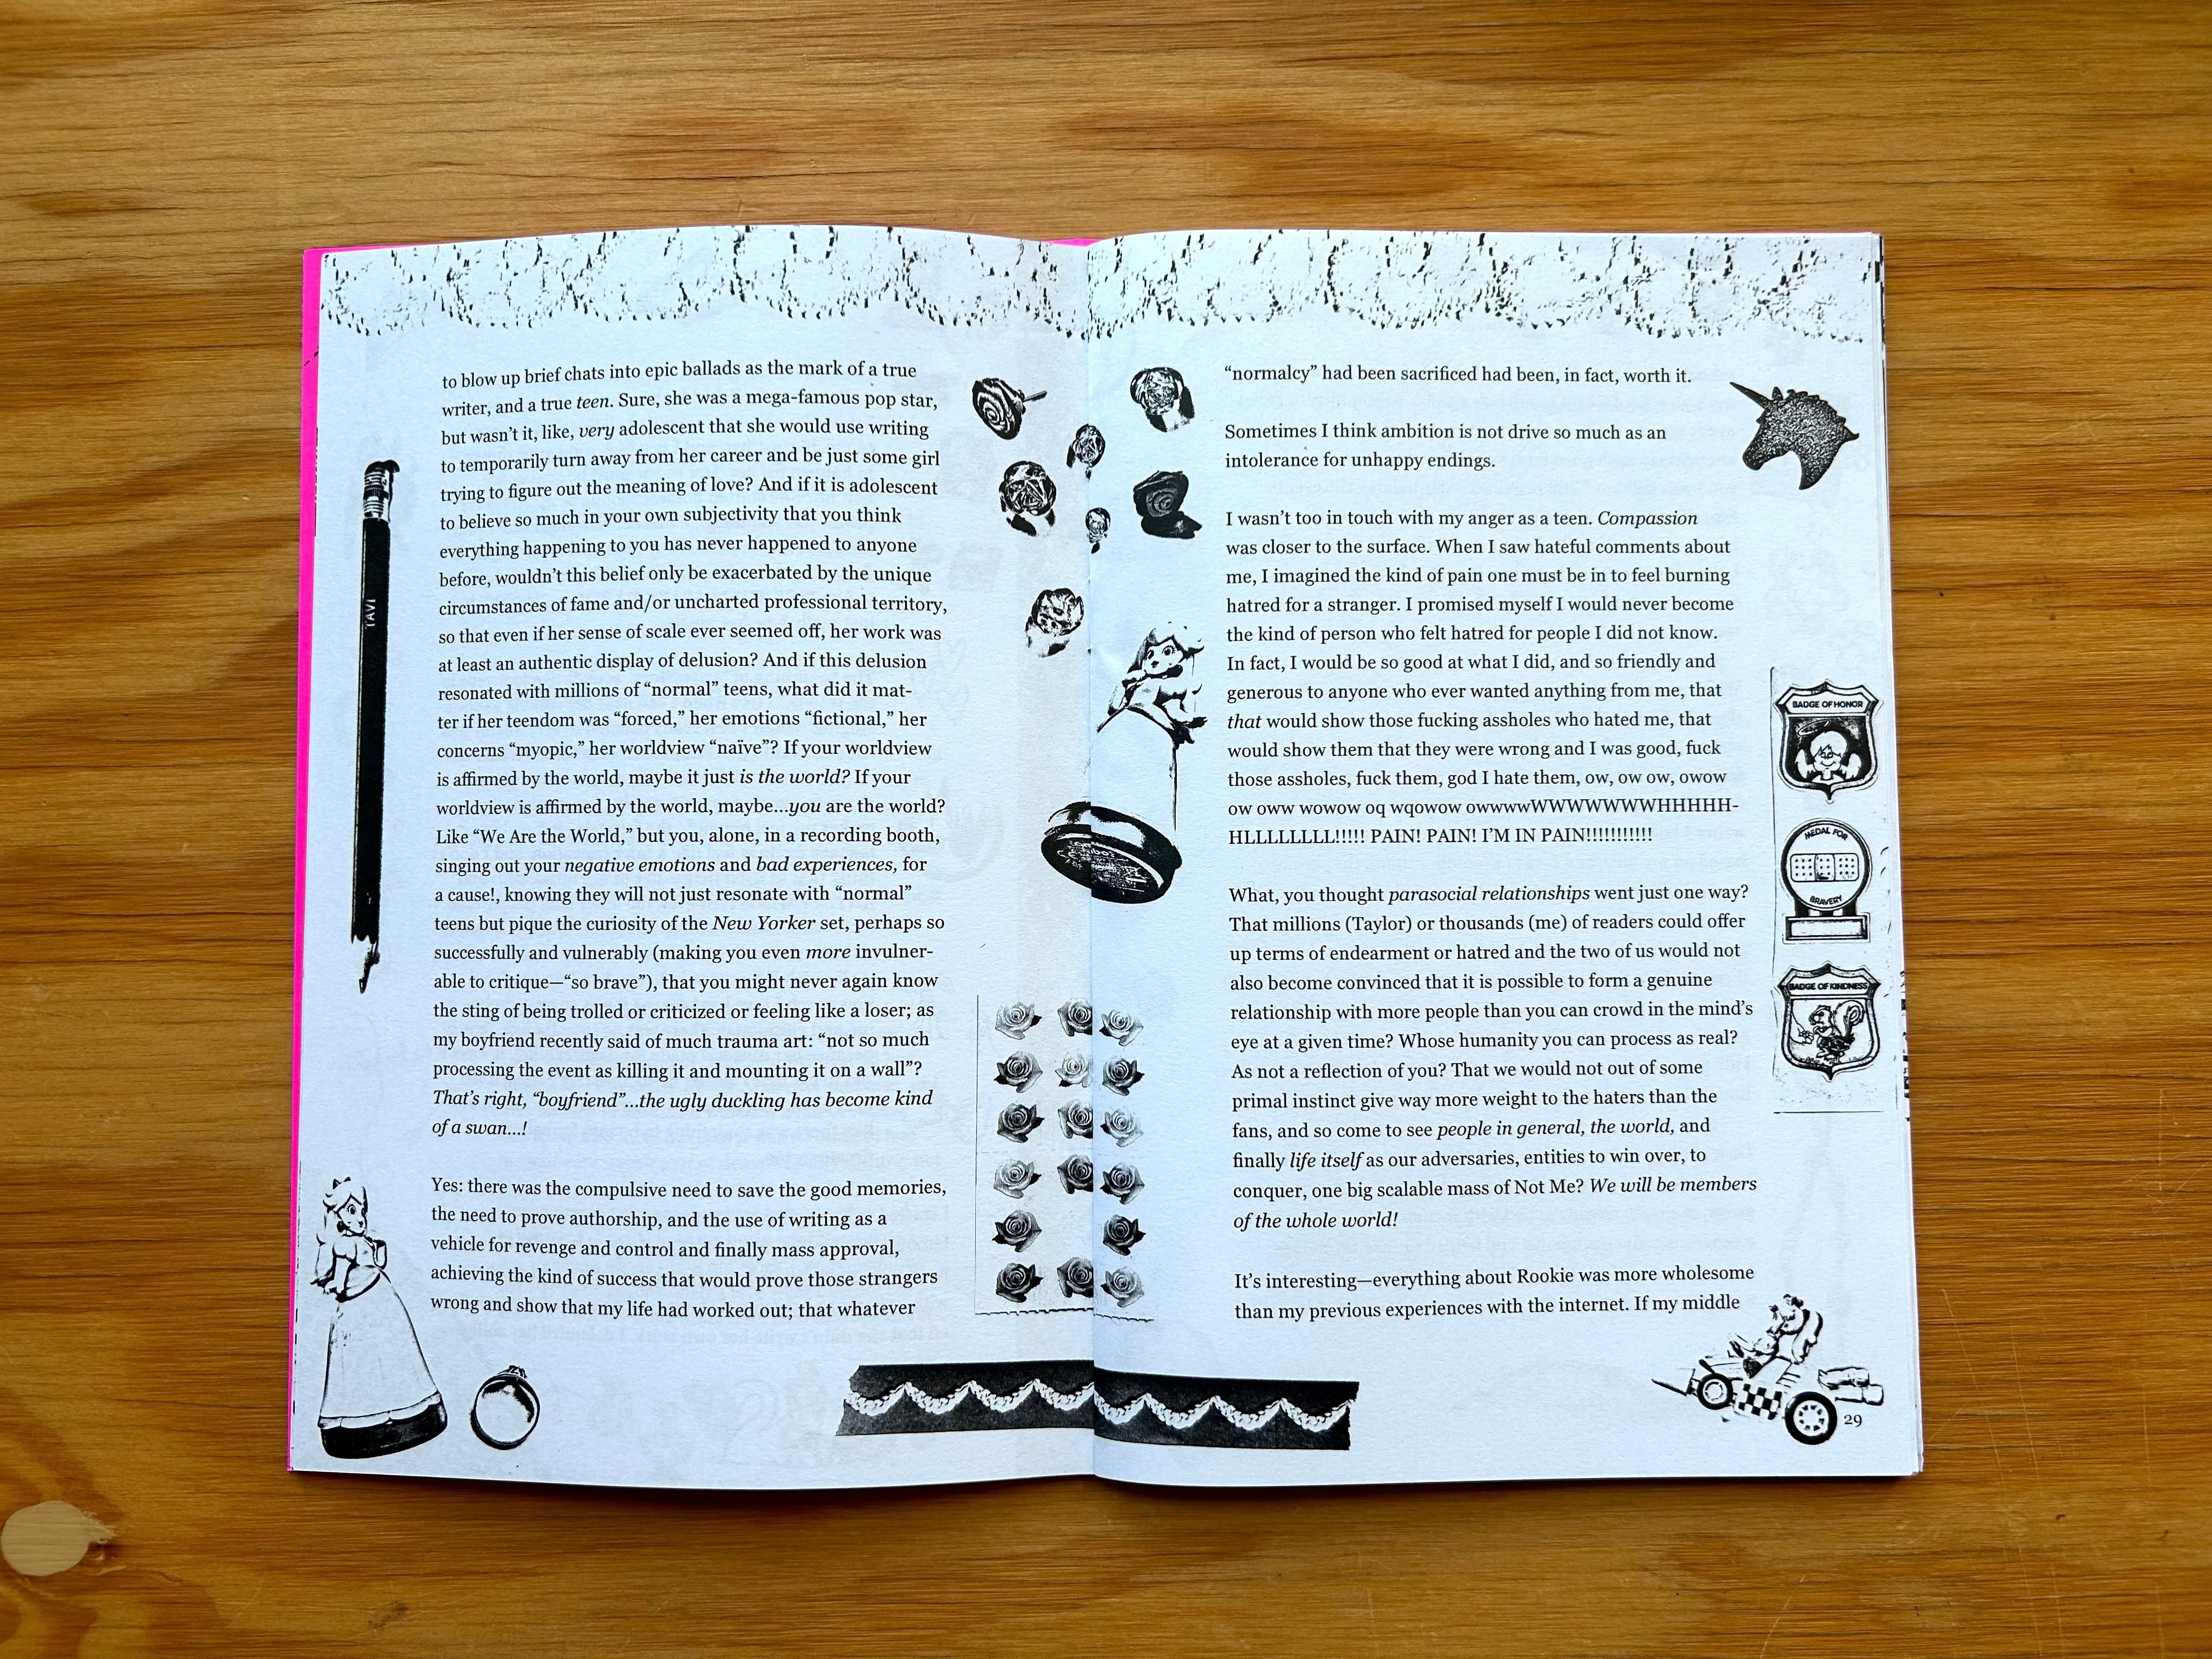 to blow up brief chats into epic ballads as the mark of a true
writer, and a true teen. Sure, she was a mega-famous pop star,
but wasn’t it, like, very adolescent that she would use writing
to temporarily turn away from her career and be just some girl
trying to figure out the meaning of love? And if it is adolescent
to believe so much in your own subjectivity that you think
everything happening to you has never happened to anyone
before, wouldn’t this belief only be exacerbated by the unique
circumstances of fame and/or uncharted professional territory,
so that even if her sense of scale ever seemed off, her work was
at least an authentic display of delusion? And if this delusion
resonated with millions of “normal” teens, what did it mat-
ter if her teendom was “forced,” her emotions “fictional,” her
concerns “myopic,” her worldview “naïve”? If your worldview
is affirmed by the world, maybe it just is the world? If your
worldview is affirmed by the world, maybe…you are the world?
Like “We Are the World,” but you, alone, in a recording booth,
singing out your negative emotions and bad experiences, for
a cause!, knowing they will not just resonate with “normal”
teens but pique the curiosity of the New Yorker set, perhaps so
successfully and vulnerably (making you even more invulner-
able to critique—“so brave”), that you might never again know
the sting of being trolled or criticized or feeling like a loser; as
my boyfriend recently said of much trauma art: “not so much
processing the event as killing it and mounting it on a wall”?
That’s right, “boyfriend”…the ugly duckling has become kind
of a swan…!
Yes: there was the compulsive need to save the good memories,
the need to prove authorship, and the use of writing as a
vehicle for revenge and control and finally mass approval,
achieving the kind of success that would prove those strangers
wrong and show that my life had worked out; that whatever
TAVI
“normalcy” had been sacrificed had been, in fact, worth it.
Sometimes I think ambition is not drive so much as an
intolerance for unhappy endings.
I wasn’t too in touch with my anger as a teen. Compassion
was closer to the surface. When I saw hateful comments about
me, I imagined the kind of pain one must be in to feel burning
hatred for a stranger. I promised myself I would never become
the kind of person who felt hatred for people I did not know.
In fact, I would be so good at what I did, and so friendly and
generous to anyone who ever wanted anything from me, that
that would show those fucking assholes who hated me, that
would show them that they were wrong and I was good, fuck
those assholes, fuck them, god I hate them, ow, ow ow, owow
ow oww wowow oq wqowow owwwwWWWWWWWHHHHH-
HLLLLLLLL!!!!! PAIN! PAIN! I’M IN PAIN!!!!!!!!!!!
What, you thought parasocial relationships went just one way?
That millions (Taylor) or thousands (me) of readers could offer
up terms of endearment or hatred and the two of us would not
also become convinced that it is possible to form a genuine
relationship with more people than you can crowd in the mind’s
eye at a given time? Whose humanity you can process as real?
As not a reflection of you? That we would not out of some
primal instinct give way more weight to the haters than the
fans, and so come to see people in general, the world, and
finally life itself as our adversaries, entities to win over, to
conquer, one big scalable mass of Not Me? We will be members
of the whole world!
It’s interesting—everything about Rookie was more wholesome
than my previous experiences with the internet. If my middle
BADGE OF HONOR
MEDAL FOR
BRAVERY
BADGE OF KINDNESS
29